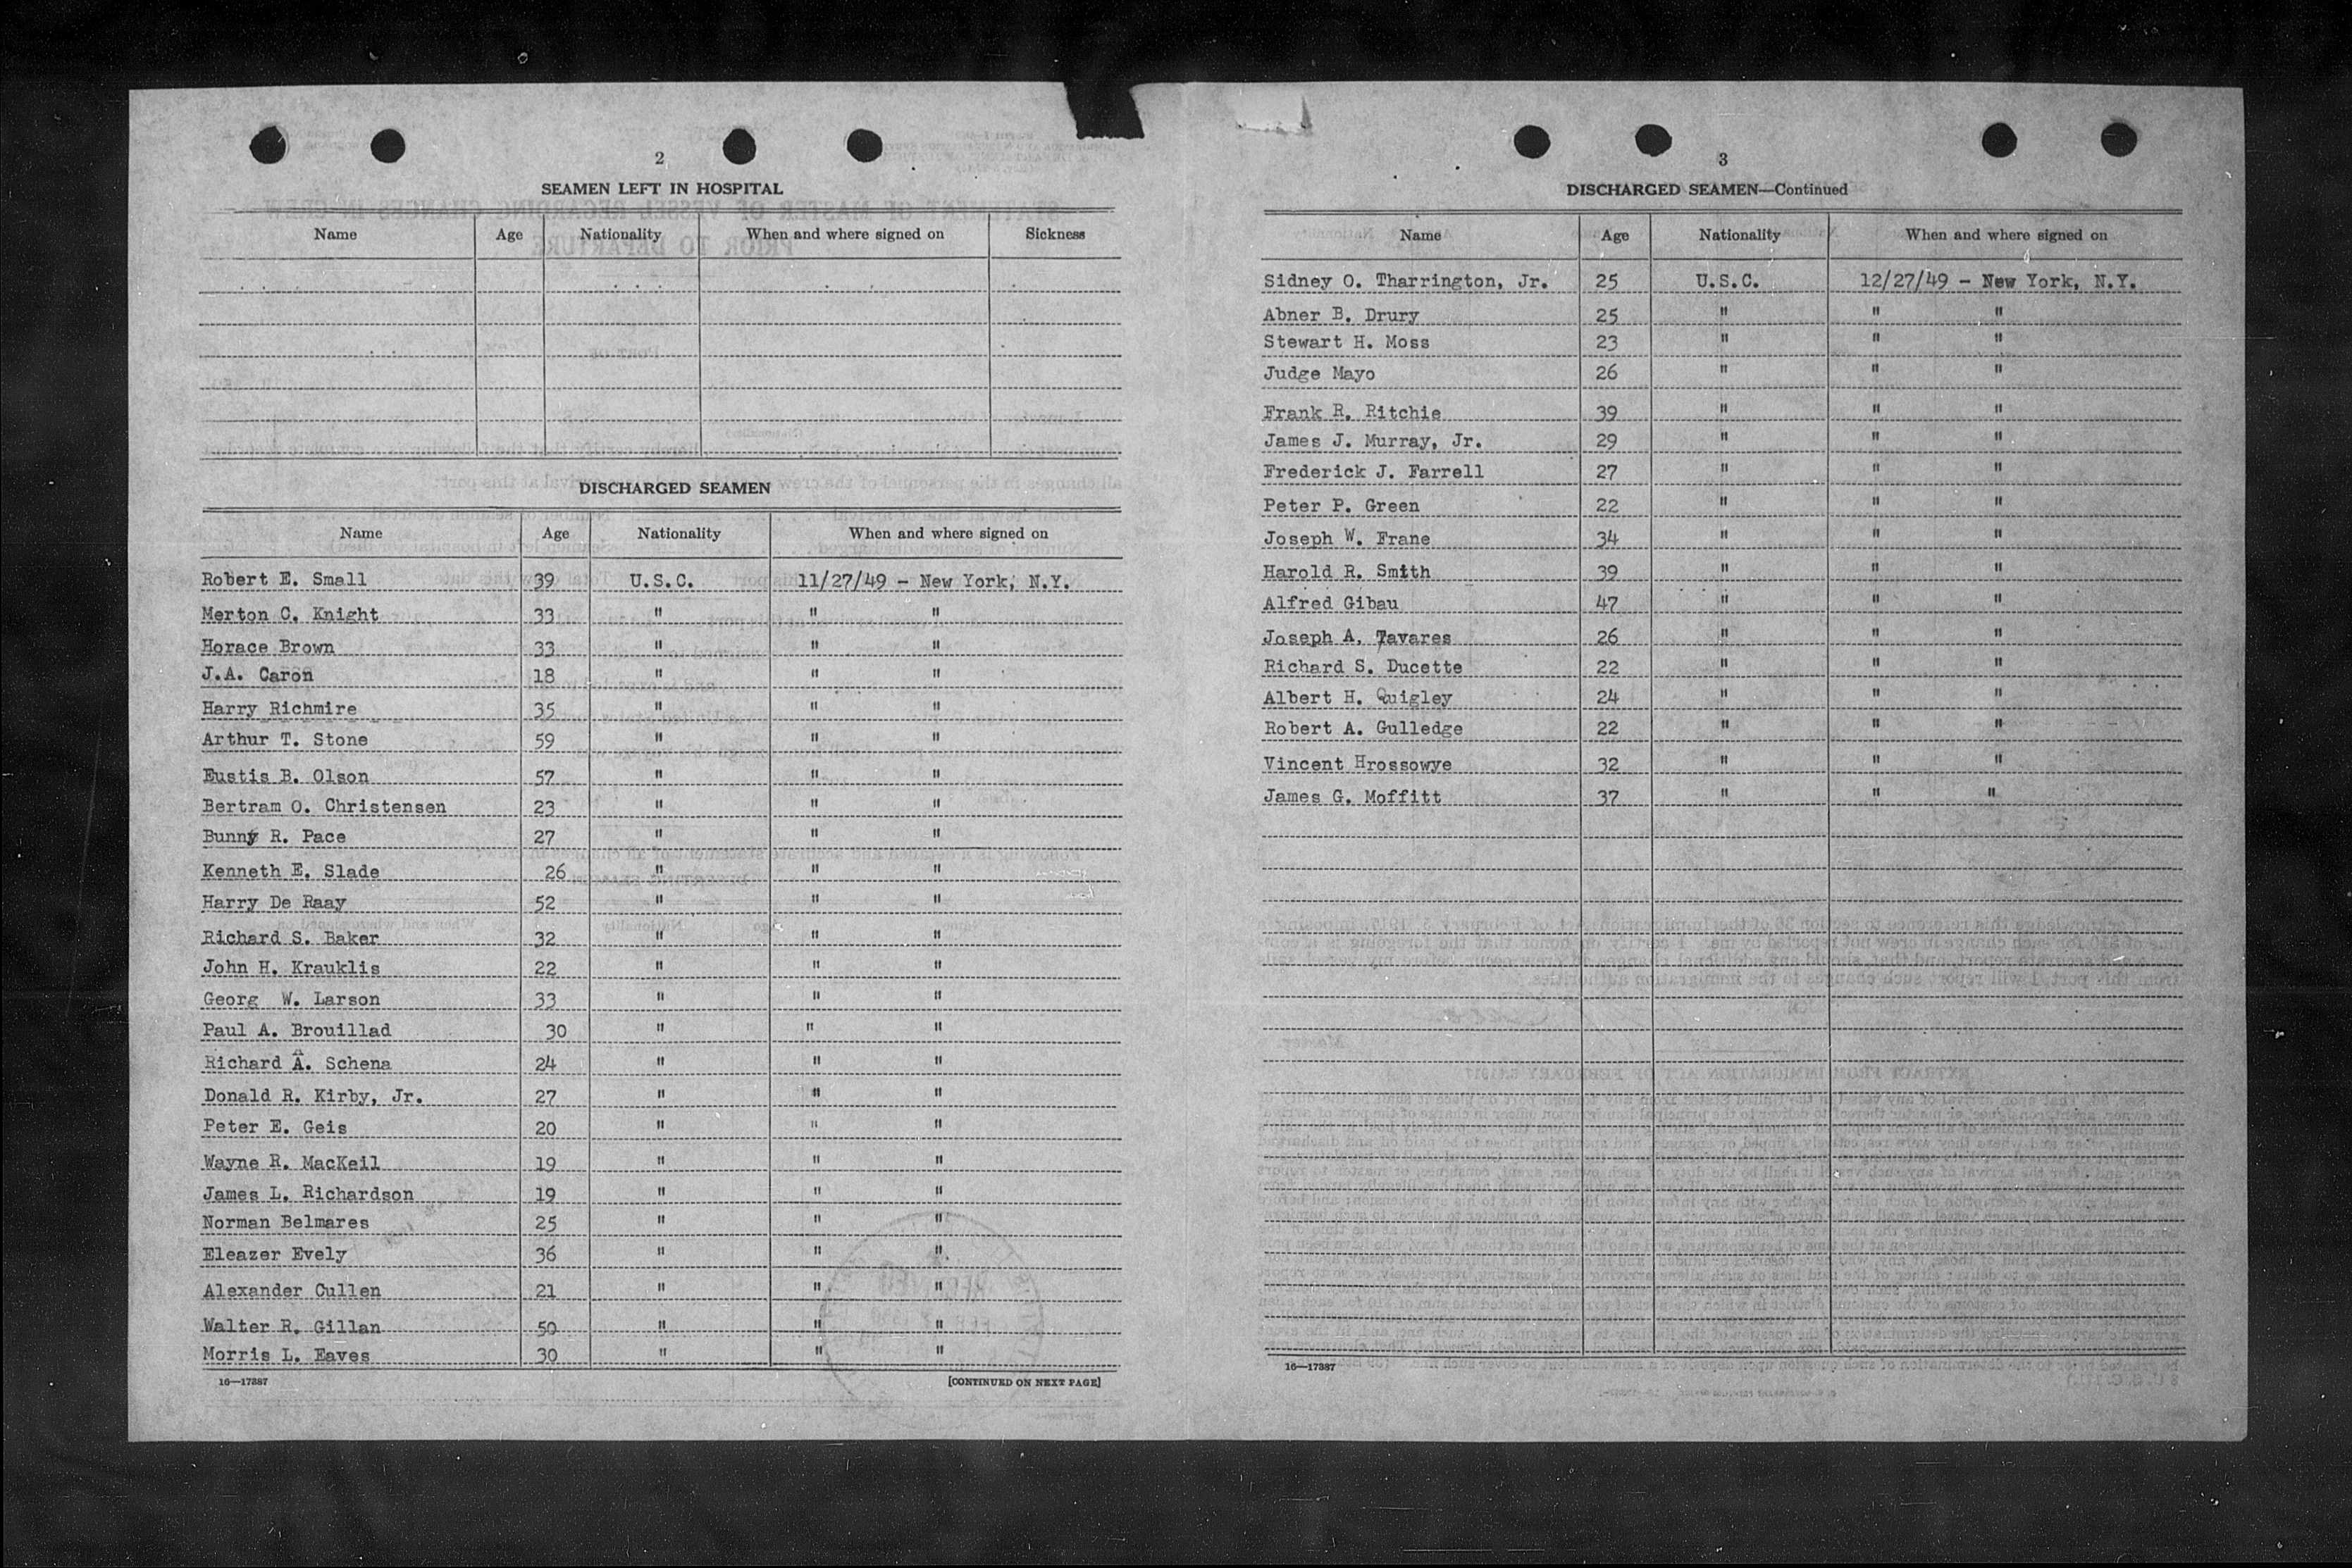 2
SEAMEN LEFT IN HOSPITAL
Name Age Nationality When and where signed on Sickness
DISCHARGED SEAMEN
Name Age Nationality When and where signed on
Robert E. Small 39 U.S.C. 11/27/49 - New York, N.Y.
Merton C. Knight 33 " " "
Horace Brown 33 " " "
J.A. Caron 18 " " "
Harry Richmire 35 " " "
Arthur T. Stone 59 " " "
Eustis B. Olson 57 " " "
Bertram O. Christensen 23 " " "
Bunny R. Pace 27 " " "
Kenneth E. Slade 26 " " "
Harry De Raay 52 " " "
Richard S. Baker 32 " " "
John H. Krauklis 22 " " "
Georg W. Larson 33 " " "
Paul A. Brouillad 30 " " "
Richard A. Schena 24 " " "
Donald R. Kirby, Jr. 27 " " "
Peter E. Geis 20 " " "
Wayne R. MacKeil 19 " " "
James L. Richardson 19 " " "
Norman Belmares 25 " " "
Eleazer Evely 36 " " "
Alexander Cullen 21 " " "
Walter R. Gillan 50 " " "
Morris L. Eaves 30 " " "
16—17387 [CONTINUED ON NEXT PAGE]
3
DISCHARGED SEAMEN—Continued
Name Age Nationality When and where signed on
Sidney O. Tharrington, Jr. 25 U.S.C. 12/27/49 - New York, N.Y.
Abner B. Drury 25 " " "
Stewart H. Moss 23 " " "
Judge Mayo 26 " " "
Frank R. Ritchie 39 " " "
James J. Murray, Jr. 29 " " "
Frederick J. Farrell 27 " " "
Peter P. Green 22 " " "
Joseph W. Frane 34 " " "
Harold R. Smith 39 " " "
Alfred Gibau 47 " " "
Joseph A. Tavares 26 " " "
Richard S. Ducette 22 " " "
Albert H. Quigley 24 " " "
Robert A. Gulledge 22 " " "
Vincent Hrossowye 32 " " "
James G. Moffitt 37 " " "
16—17387